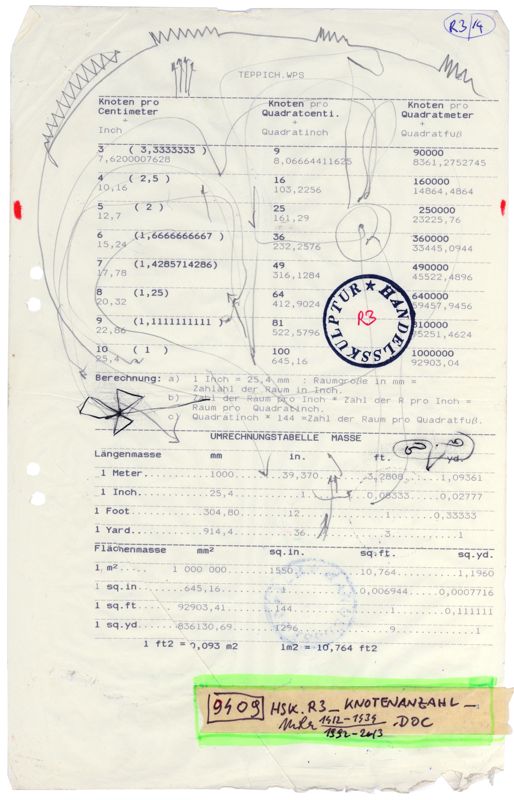 R3/14
TEPPICH.WPS
Knoten pro Knoten pro Knoten pro
Centimeter Quadratcenti. Quadratmeter
+ + +
Inch Quadratinch Quadratfuß
3 ( 3,3333333 ) 9 90000
7,6200007628 8,06664411625 8361,2752745
4 ( 2,5 ) 16 160000
10,16 103,2256 14864,4864
5 ( 2 ) 25 250000
12,7 161,29 23225,76
6 (1,6666666667 ) 36 360000
15,24 232,2576 33445,0944
7 (1,4285714286) 49 490000
17,78 316,1284 45522,4896
8 (1,25) 64 640000
20,32 412,9024 59457,9456
9 (1,1111111111 ) 81 810000
22,86 522,5796 75251,4624
10 ( 1 ) 100 1000000
25,4 645,16 92903,04
HANDELSSKULPTUR ★
R3
Berechnung: a) 1 Inch = 25,4 mm : Raumgroße in mm =
Zahlahl der Raum in Inch.
b) Zahl der Raum pro Inch * Zahl der R pro Inch =
Raum pro Quadratinch.
c) Quadratinch * 144 =Zahl der Raum pro Quadratfuß.
UMRECHNUNGSTABELLE MASSE
Längenmasse mm in. ft. yd.
1 Meter......... 1000......39,370......3,2808....1,09361
1 Inch.......... 25,4........1......0,08333....0,02777
1 Foot......... 304,80......12........1......0,33333
1 Yard......... 914,4.......36........3........1
Flächenmasse mm² sq.in. sq.ft. sq.yd.
1 m²...... 1 000 000 ....1550......10,764.....1,1960
1 sq.in......645,16......1......0,006944..0,0007716
1 sq.ft....92903,41.....144........1.....0,111111
1 sq.yd...836130,69....1296........9........1
1 ft2 = 0,093 m2 1m2 = 10,764 ft2
9409 HSK.R3_KNOTENANZAHL_
1912-1939 .DOC
1992-2013